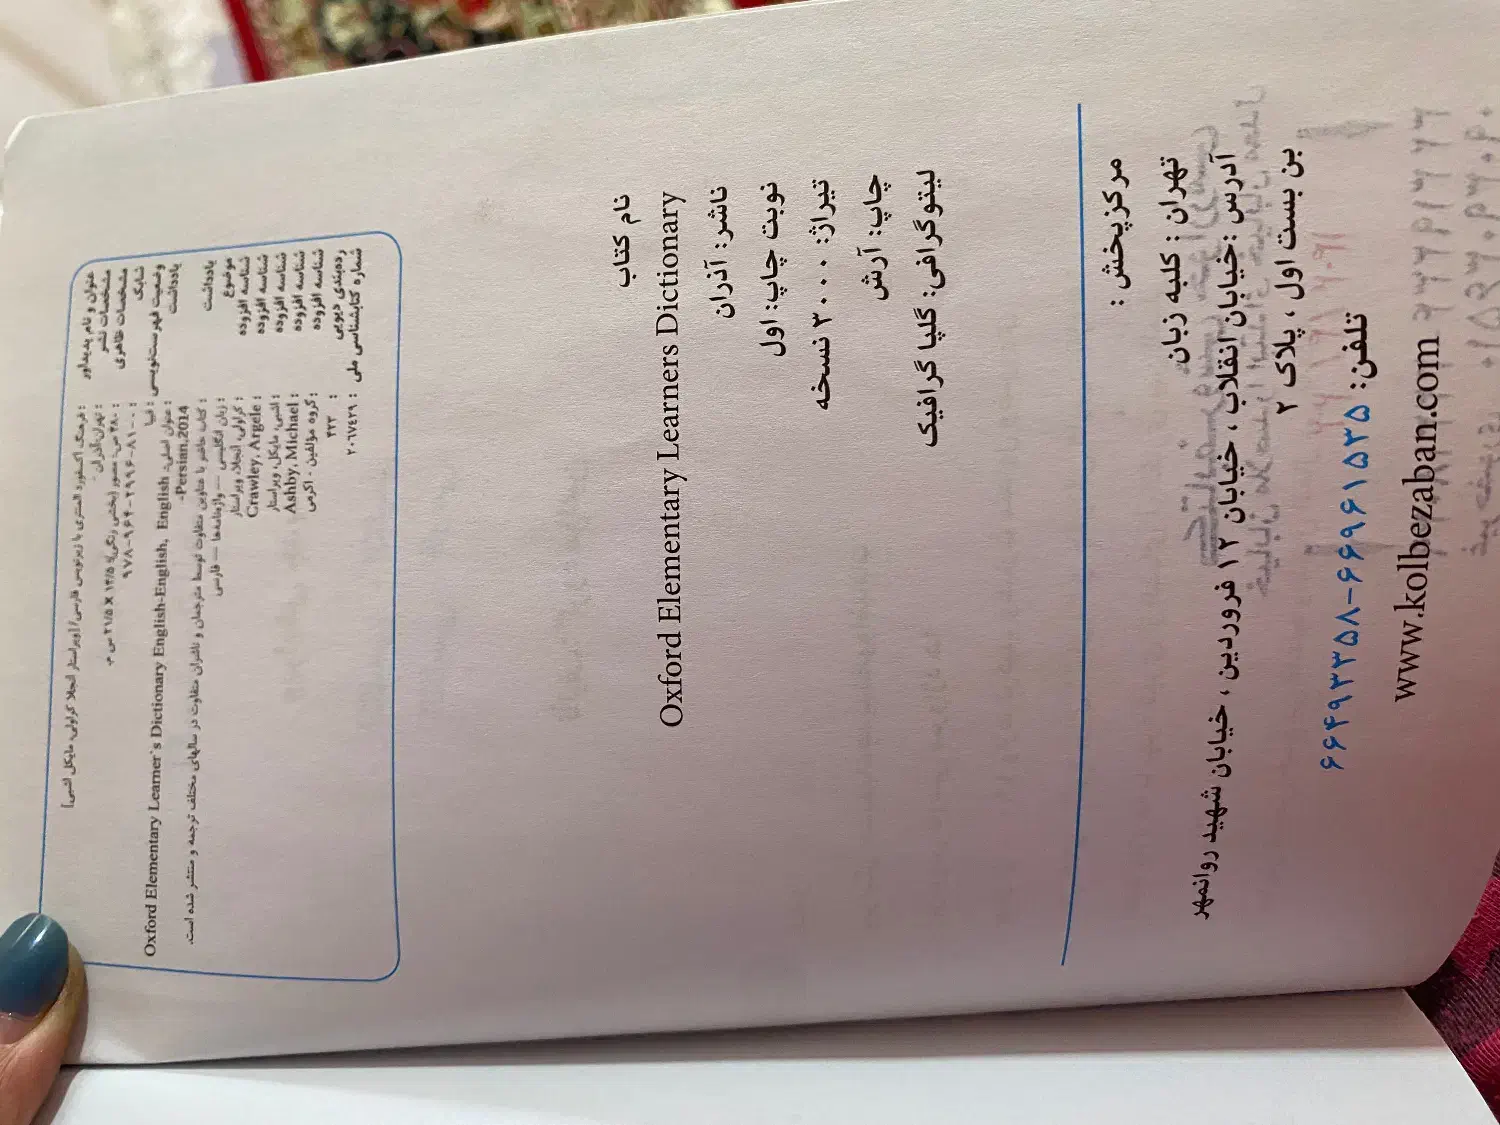 عنوان و نام پدیدآور : فرهنگ آکسفورد المنتری با زیرنویس فارسی/ [ویراستار آنجلا کراولی، مایکل اشبی]
مشخصات نشر : تهران: آذران
مشخصات ظاهری : ۴۸۰ ص: مصور (بخشی رنگی)؛ ۱۴/۵ X ۲۱/۵ س م.
شابک : ۹۷۸-۹۶۴-۲۹۹۶-۸۱-۰
وضعیت فهرست‌نویسی : فیپا
یادداشت : عنوان اصلی: Oxford Elementary Learner's Dictionary English-English,
-Persian,2014
یادداشت : کتاب حاضر با عناوین متفاوت توسط مترجمان و ناشران متفاوت در سالهای مختلف ترجمه و منتشر شده است.
موضوع : زبان انگلیسی -- واژه‌نامه‌ها -- فارسی
شناسه افزوده : کراولی، آنجلا، ویراستار
شناسه افزوده : Crawley, Argele
شناسه افزوده : اشبی، مایکل، ویراستار
شناسه افزوده : Ashby, Michael
شناسه افزوده : گروه مؤلفین - اکرمی
رده‌بندی دیویی : ۴۲۳
شماره کتابشناسی ملی : ۲۰۶۷۴۲۹
نام کتاب
Oxford Elementary Learners Dictionary
ناشر: آذران
نوبت چاپ: اول
تیراژ: ۳۰۰۰ نسخه
چاپ: آرش
لیتوگرافی: گلپا گرافیک
مرکزپخش :
تهران : کلبه زبان
آدرس :خیابان انقلاب ، خیابان ۱۲ فروردین ، خیابان شهید روانمهر
بن بست اول ، پلاک ۲
تلفن: ۶۶۴۹۳۳۵۸-۶۶۹۶۱۵۳۵
www.kolbezaban.com